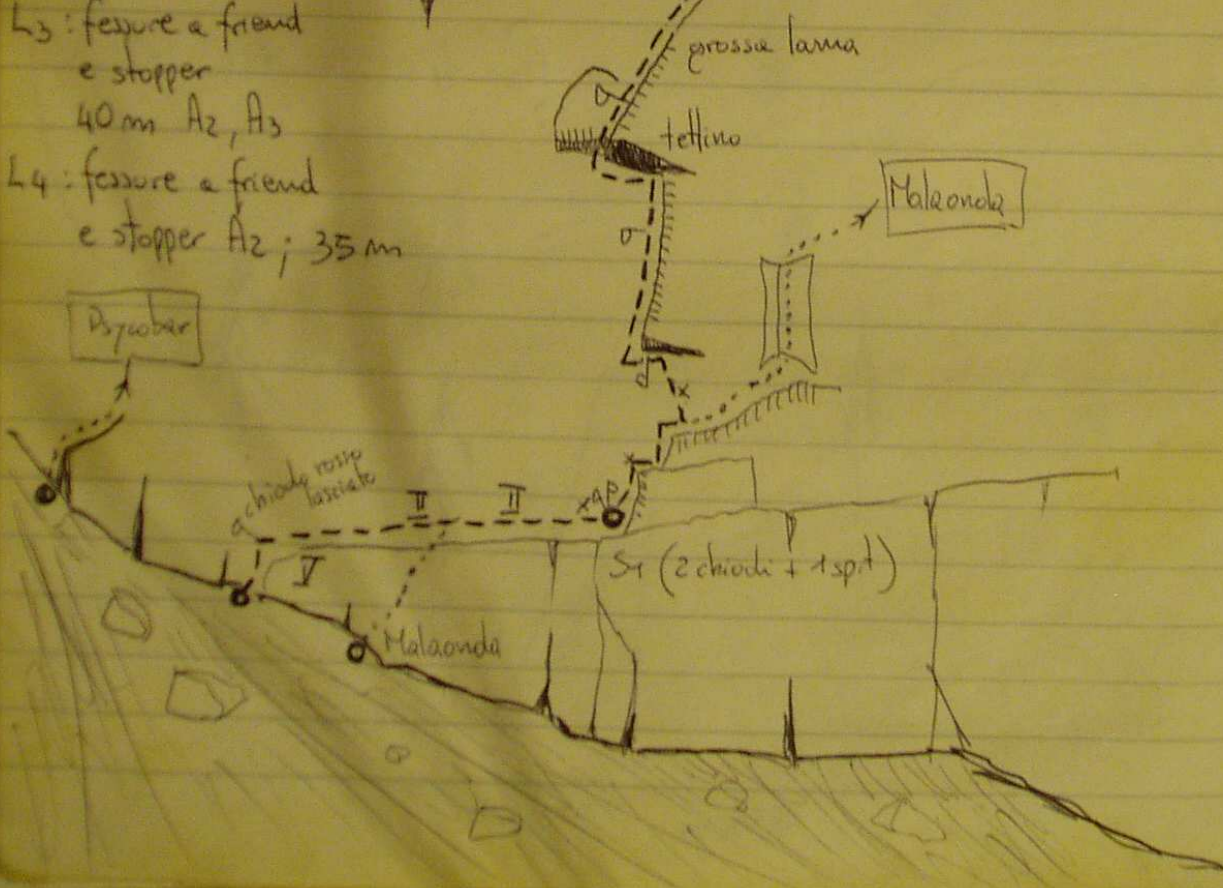 L3 : fessure a friend
e stopper
40 m A2, A3
L4 : fessure a friend
e stopper A2 ; 35 m
grossa lama
tettino
Malaonda
Psycobar
chiodo rosso
lasciato
II II
V
S1 (2 chiodi + 1 spit)
Malaonda